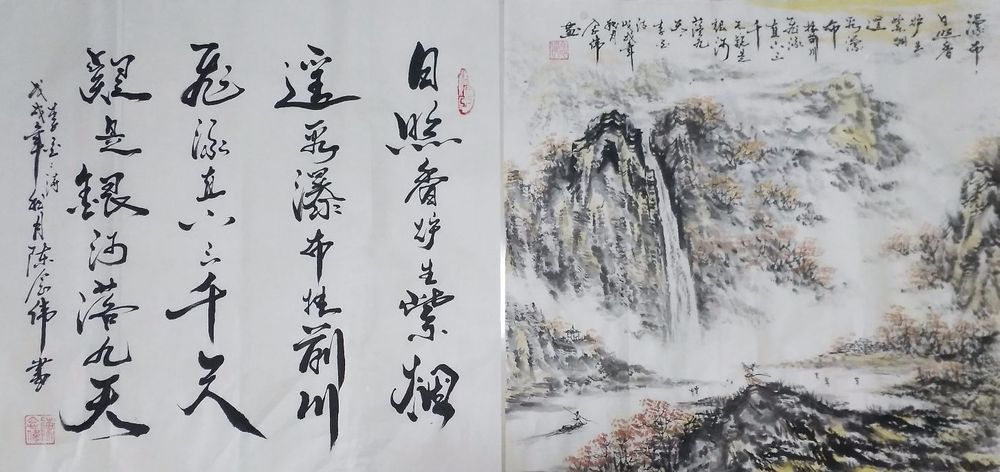 日照香炉生紫烟
遥看瀑布挂前川
飞流直下三千尺
疑是银河落九天
李白诗
戊戌年秋月陈金伟书
瀑布
日照香
炉生
紫烟
遥
看瀑
布
挂前川
飞流
直下三
千
尺疑是
银河
落九
天
李白
诗
戊戌年
秋月
金伟
画